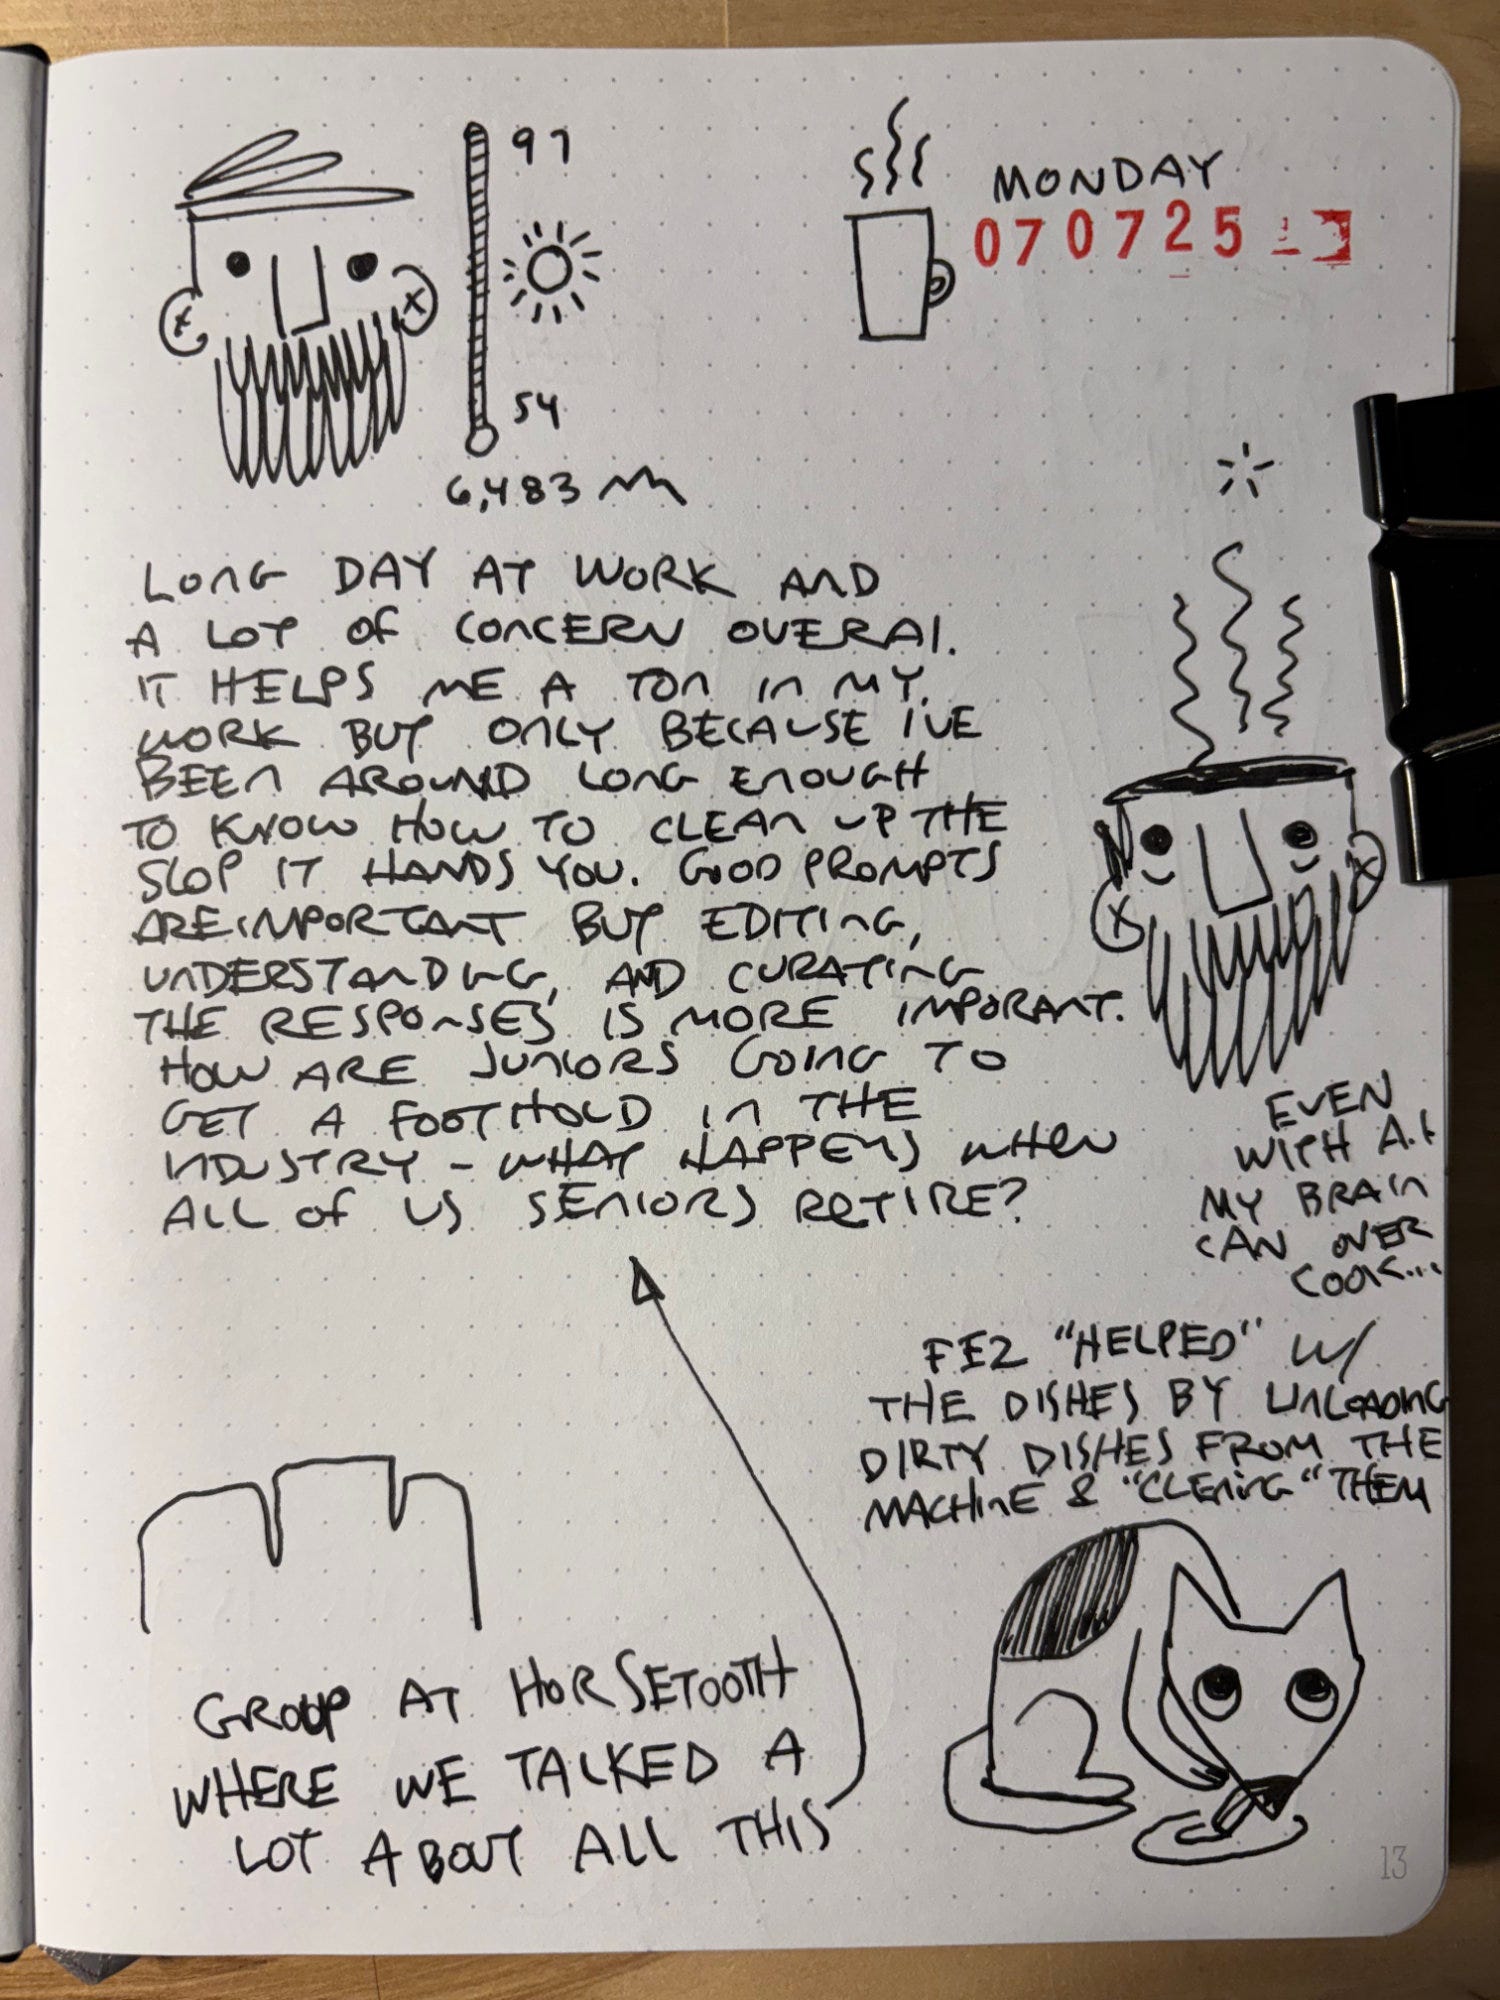 97
MONDAY
070725
54
6,483
LONG DAY AT WORK AND
A LOT OF CONCERN OVERAI.
IT HELPS ME A TON IN MY
WORK BUT ONLY BECAUSE I'VE
BEEN AROUND LONG ENOUGH
TO KNOW HOW TO CLEAN UP THE
SLOP IT HANDS YOU. GOOD PROMPTS
ARE IMPORTANT BUT EDITING,
UNDERSTANDING, AND CURATING
THE RESPONSES IS MORE IMPORANT.
HOW ARE JUNIORS GOING TO
GET A FOOTHOLD IN THE
INDUSTRY - WHAT HAPPENS WHEN
ALL OF US SENIORS RETIRE?
EVEN
WITH A.I
MY BRAIN
CAN OVER
COOK...
FEZ "HELPED" W/
THE DISHES BY UNLOADING
DIRTY DISHES FROM THE
MACHINE & "CLENING" THEM
GROUP AT HORSETOOTH
WHERE WE TALKED A
LOT ABOUT ALL THIS
13